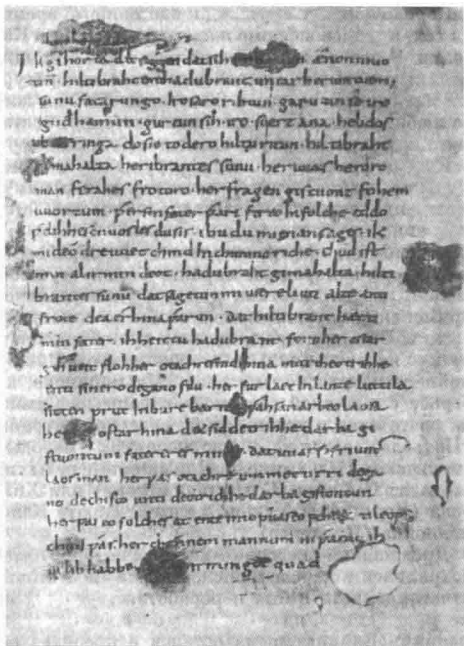 Ik gihorta dat seggen dat sih ænon muo
tin. hiltibraht enti hadubrant untar heriun tuem.
sunu fatarungo. iro saro rihtun garutun se iro
gudhamun. gurtun sih. iro. suert ana. helidos
ubar ringa do sie to dero hiltu ritun. hiltibraht
gimahalta heribrantes sunu. her uuas heroro
man ferahes frotoro. her fragen gistuont fohem
uuortum. ƿer sin fater ƿari fireo In folche eddo
ƿelihhes cnuosles du sis. ibu du mi enan sages. ik
mideo dre uuet chind In chunincriche. chud ist
min al irmin deot. hadubraht gimahalta hilti
brantes sunu dat sagetun mi usere liuti alte anti
frote dea er hina ƿarun. dat hiltibrant hætti
min fater. ih heittu hadubrant. forn her ostar
gihueit floh her otachres nid hina miti theotrihhe
enti sinero degano filu. her fur laet In lante luttila
sitten prut In bure barn unƿahsan arbeo laosa
he ostar hina det sid detrihhe darba gi
stuontum fatereres mines. dat uuas so friunt
laos man her ƿas otachre ummet tirri dega
no dechisto unti deotrichhe darba gistontun
her ƿas eo folches at ente imo ƿuas eo peheta ti leop.
chud ƿas her chonnem mannum ni ƿaniu ih
iu lib habbe irmingot quad